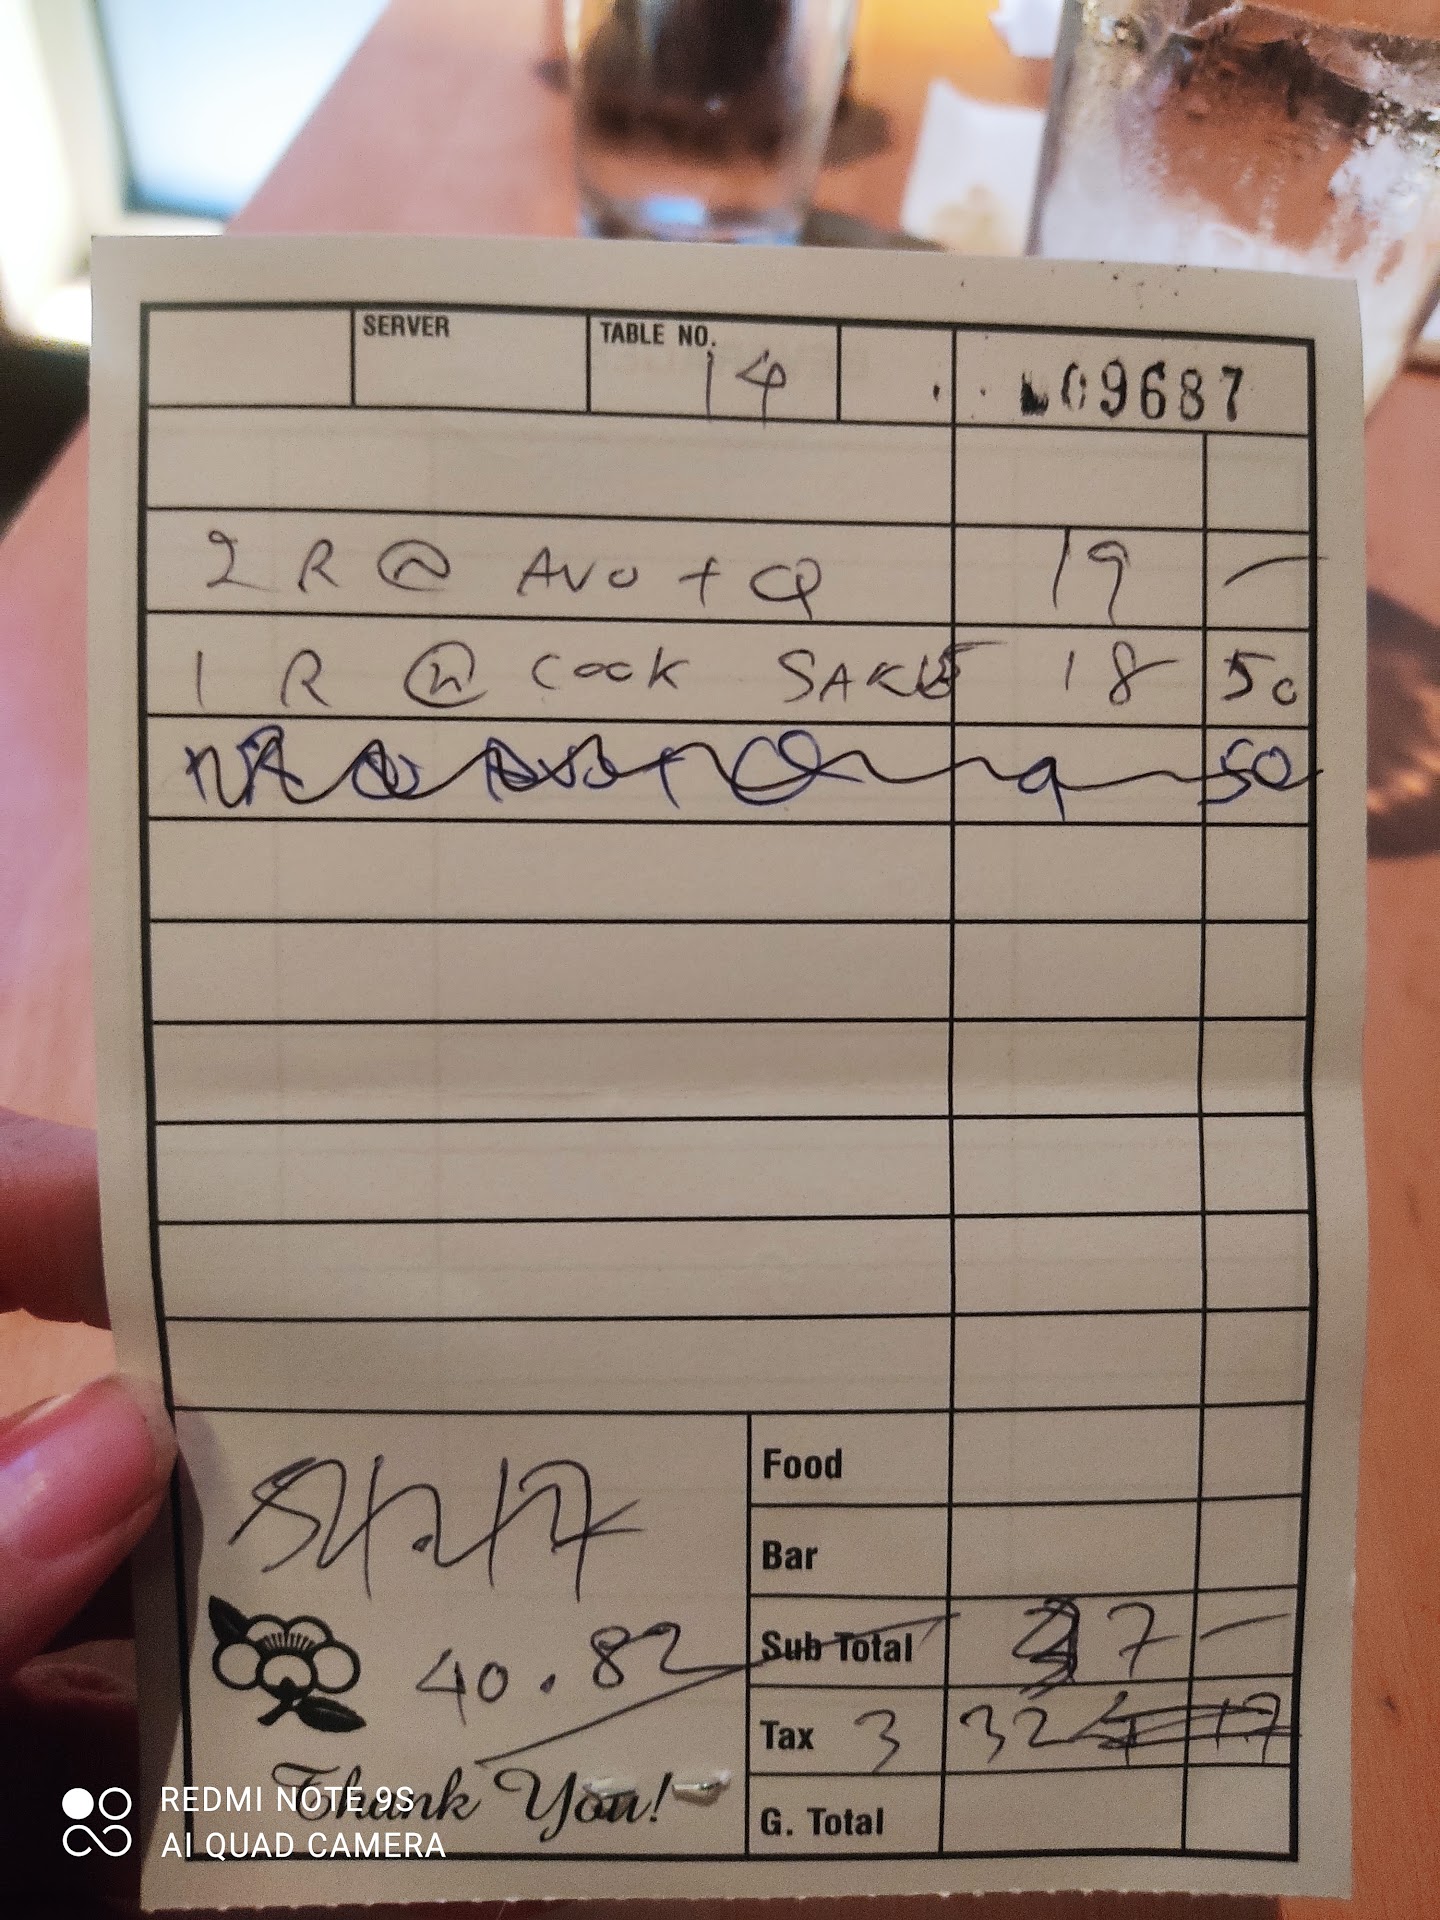 SERVER
TABLE NO. 14
09687
2 R @ AVO + Q 19 —
1 R @ COOK SAKE 18 50
9 50
Food
Bar
40.82
Sub Total 37 —
Tax 3 32
G. Total
Thank You!
REDMI NOTE 9S
AI QUAD CAMERA